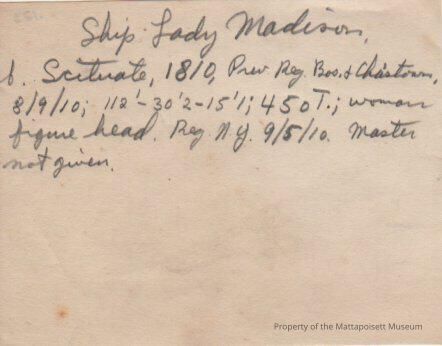 Ship Lady Madison.
b. Scituate, 1810, Prev. Reg. Bos. & Chastown,
8/9/10; 112'-30'2-15'1; 450 T.; woman
figure head. Reg N.Y. 9/5/10. Master
not given.
Property of the Mattapoisett Museum